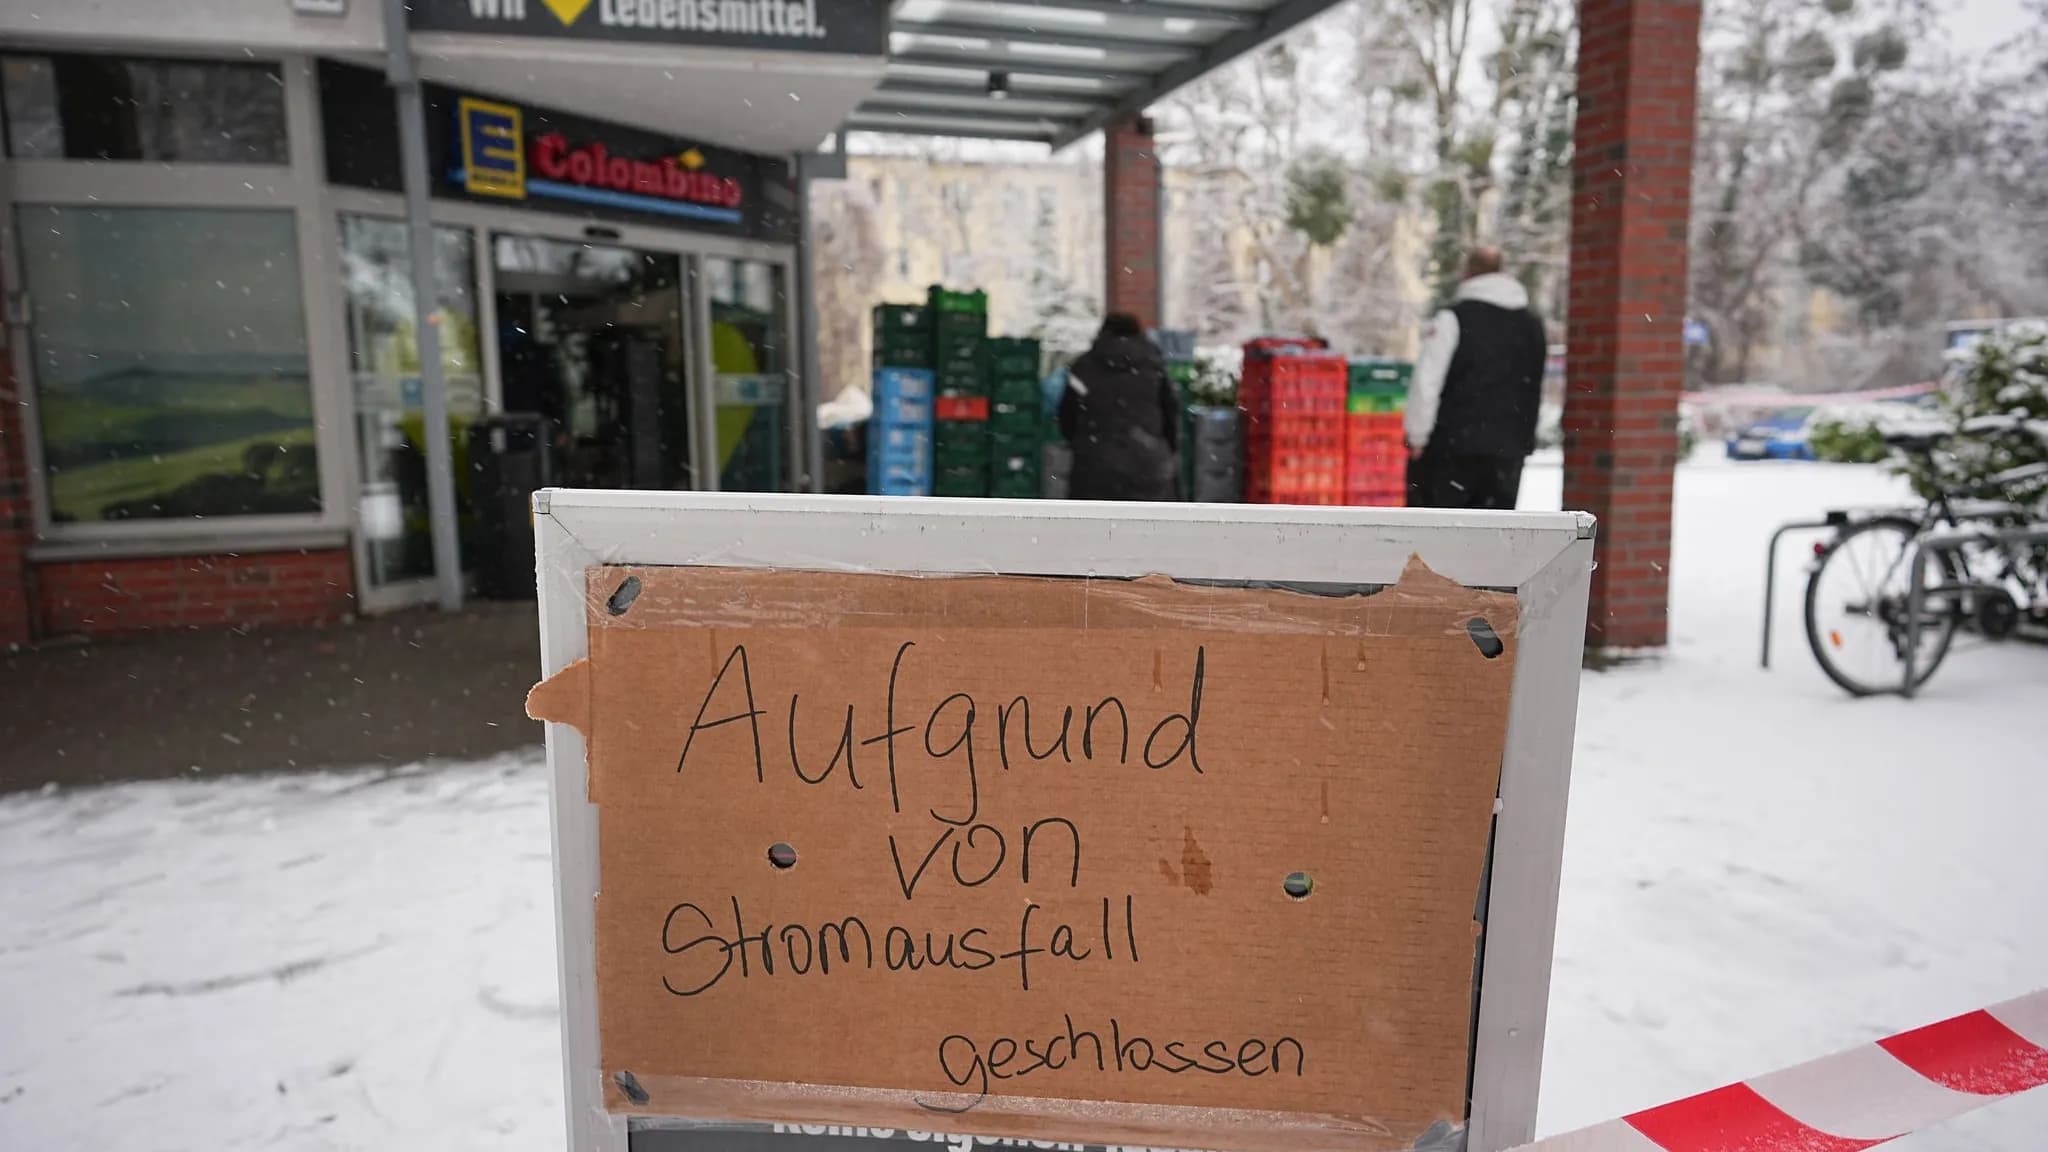 Wir Lebensmittel.
E Colombino
Aufgrund
von
Stromausfall
geschlossen